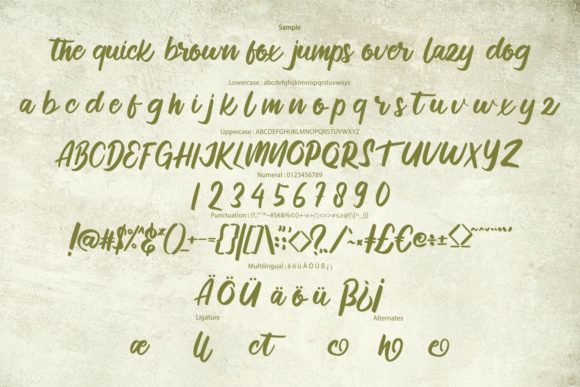 Sample
the quick brown fox jumps over lazy dog
Lowercase : abcdefghijklmnopqrstuvwxyz
a b c d e f g h i j k l m n o p q r s t u v w x y z
Uppercase : ABCDEFGHIJKLMNOPQRSTUVWXYZ
ABCDEFGHIJKLMNOPQRSTUVWXYZ
Numeral : 0123456789
1 2 3 4 5 6 7 8 9 0
Multilingual : ä ö ü Ä Ö Ü ß ¿ ¡
Ä Ö Ü ä ö ü ß ¿ ¡
Ligature Alternates